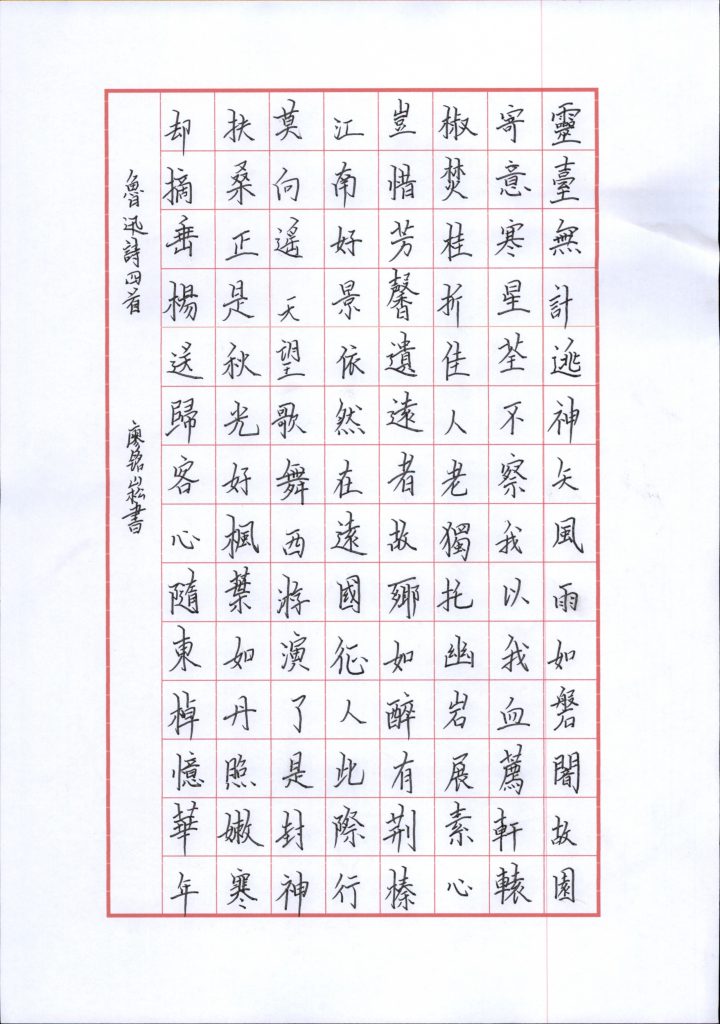 靈臺無計逃神矢風雨如磐闇故園
寄意寒星荃不察我以我血薦軒轅
椒焚桂折佳人老獨托幽岩展素心
豈惜芳馨遺遠者故鄉如醉有荆榛
江南好景依然在遠國征人此際行
莫向遙天望歌舞西游演了是封神
扶桑正是秋光好楓葉如丹照嫩寒
却摘垂楊送歸客心隨東棹憶華年
魯迅詩四首 廖銘崧書